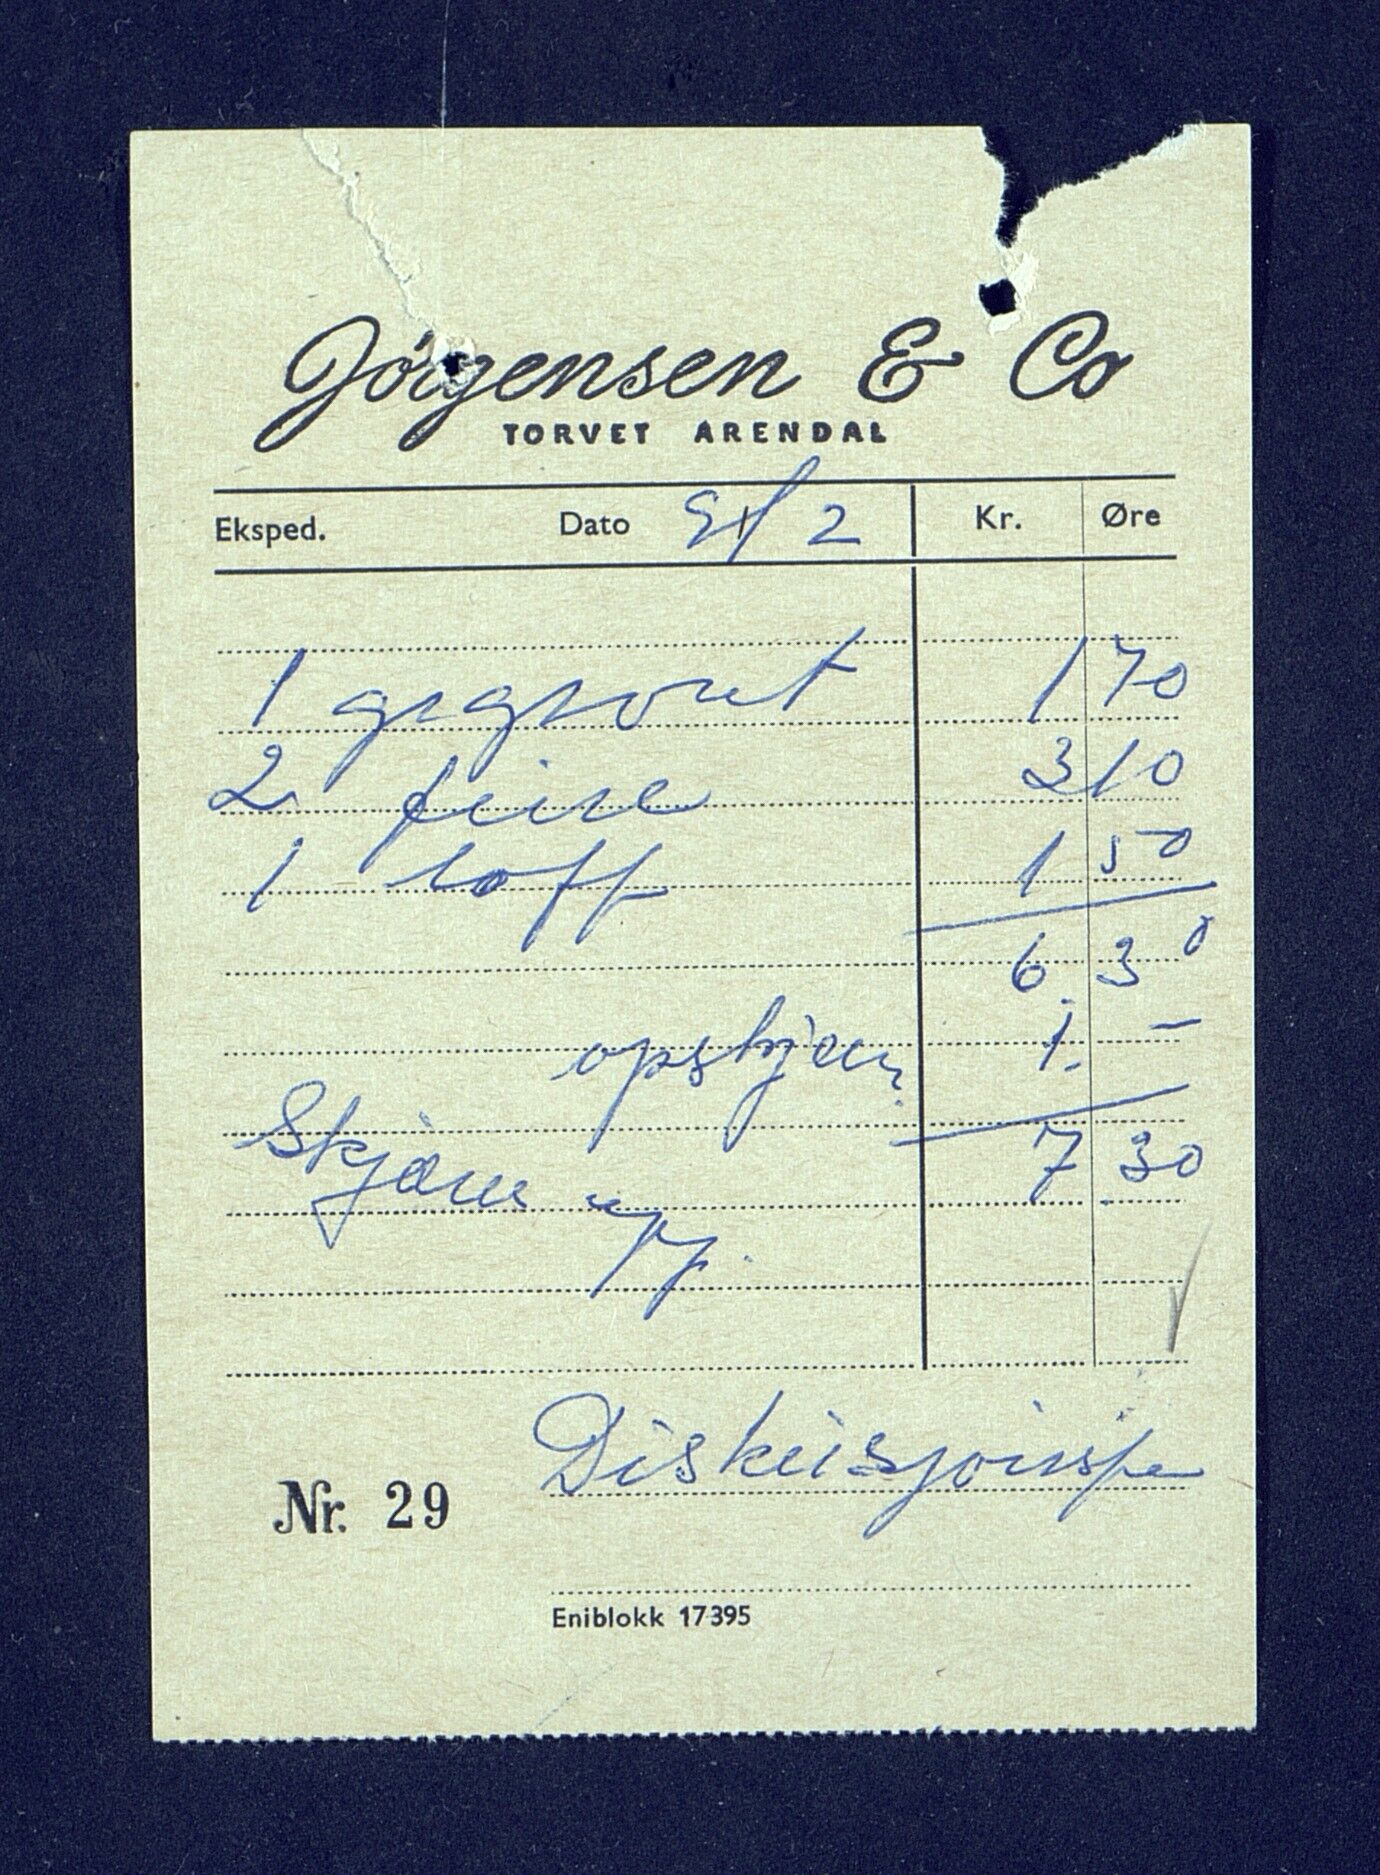 Jörgensen & Co
TORVET ARENDAL
Eksped. Dato 9/2 Kr. Øre
1 grgrovt 1 70
2 fine 3 10
1 loff 1 50
6 30
opskjær. 1. -
Skjære 7 30
opp.
Nr. 29
Eniblokk 17395